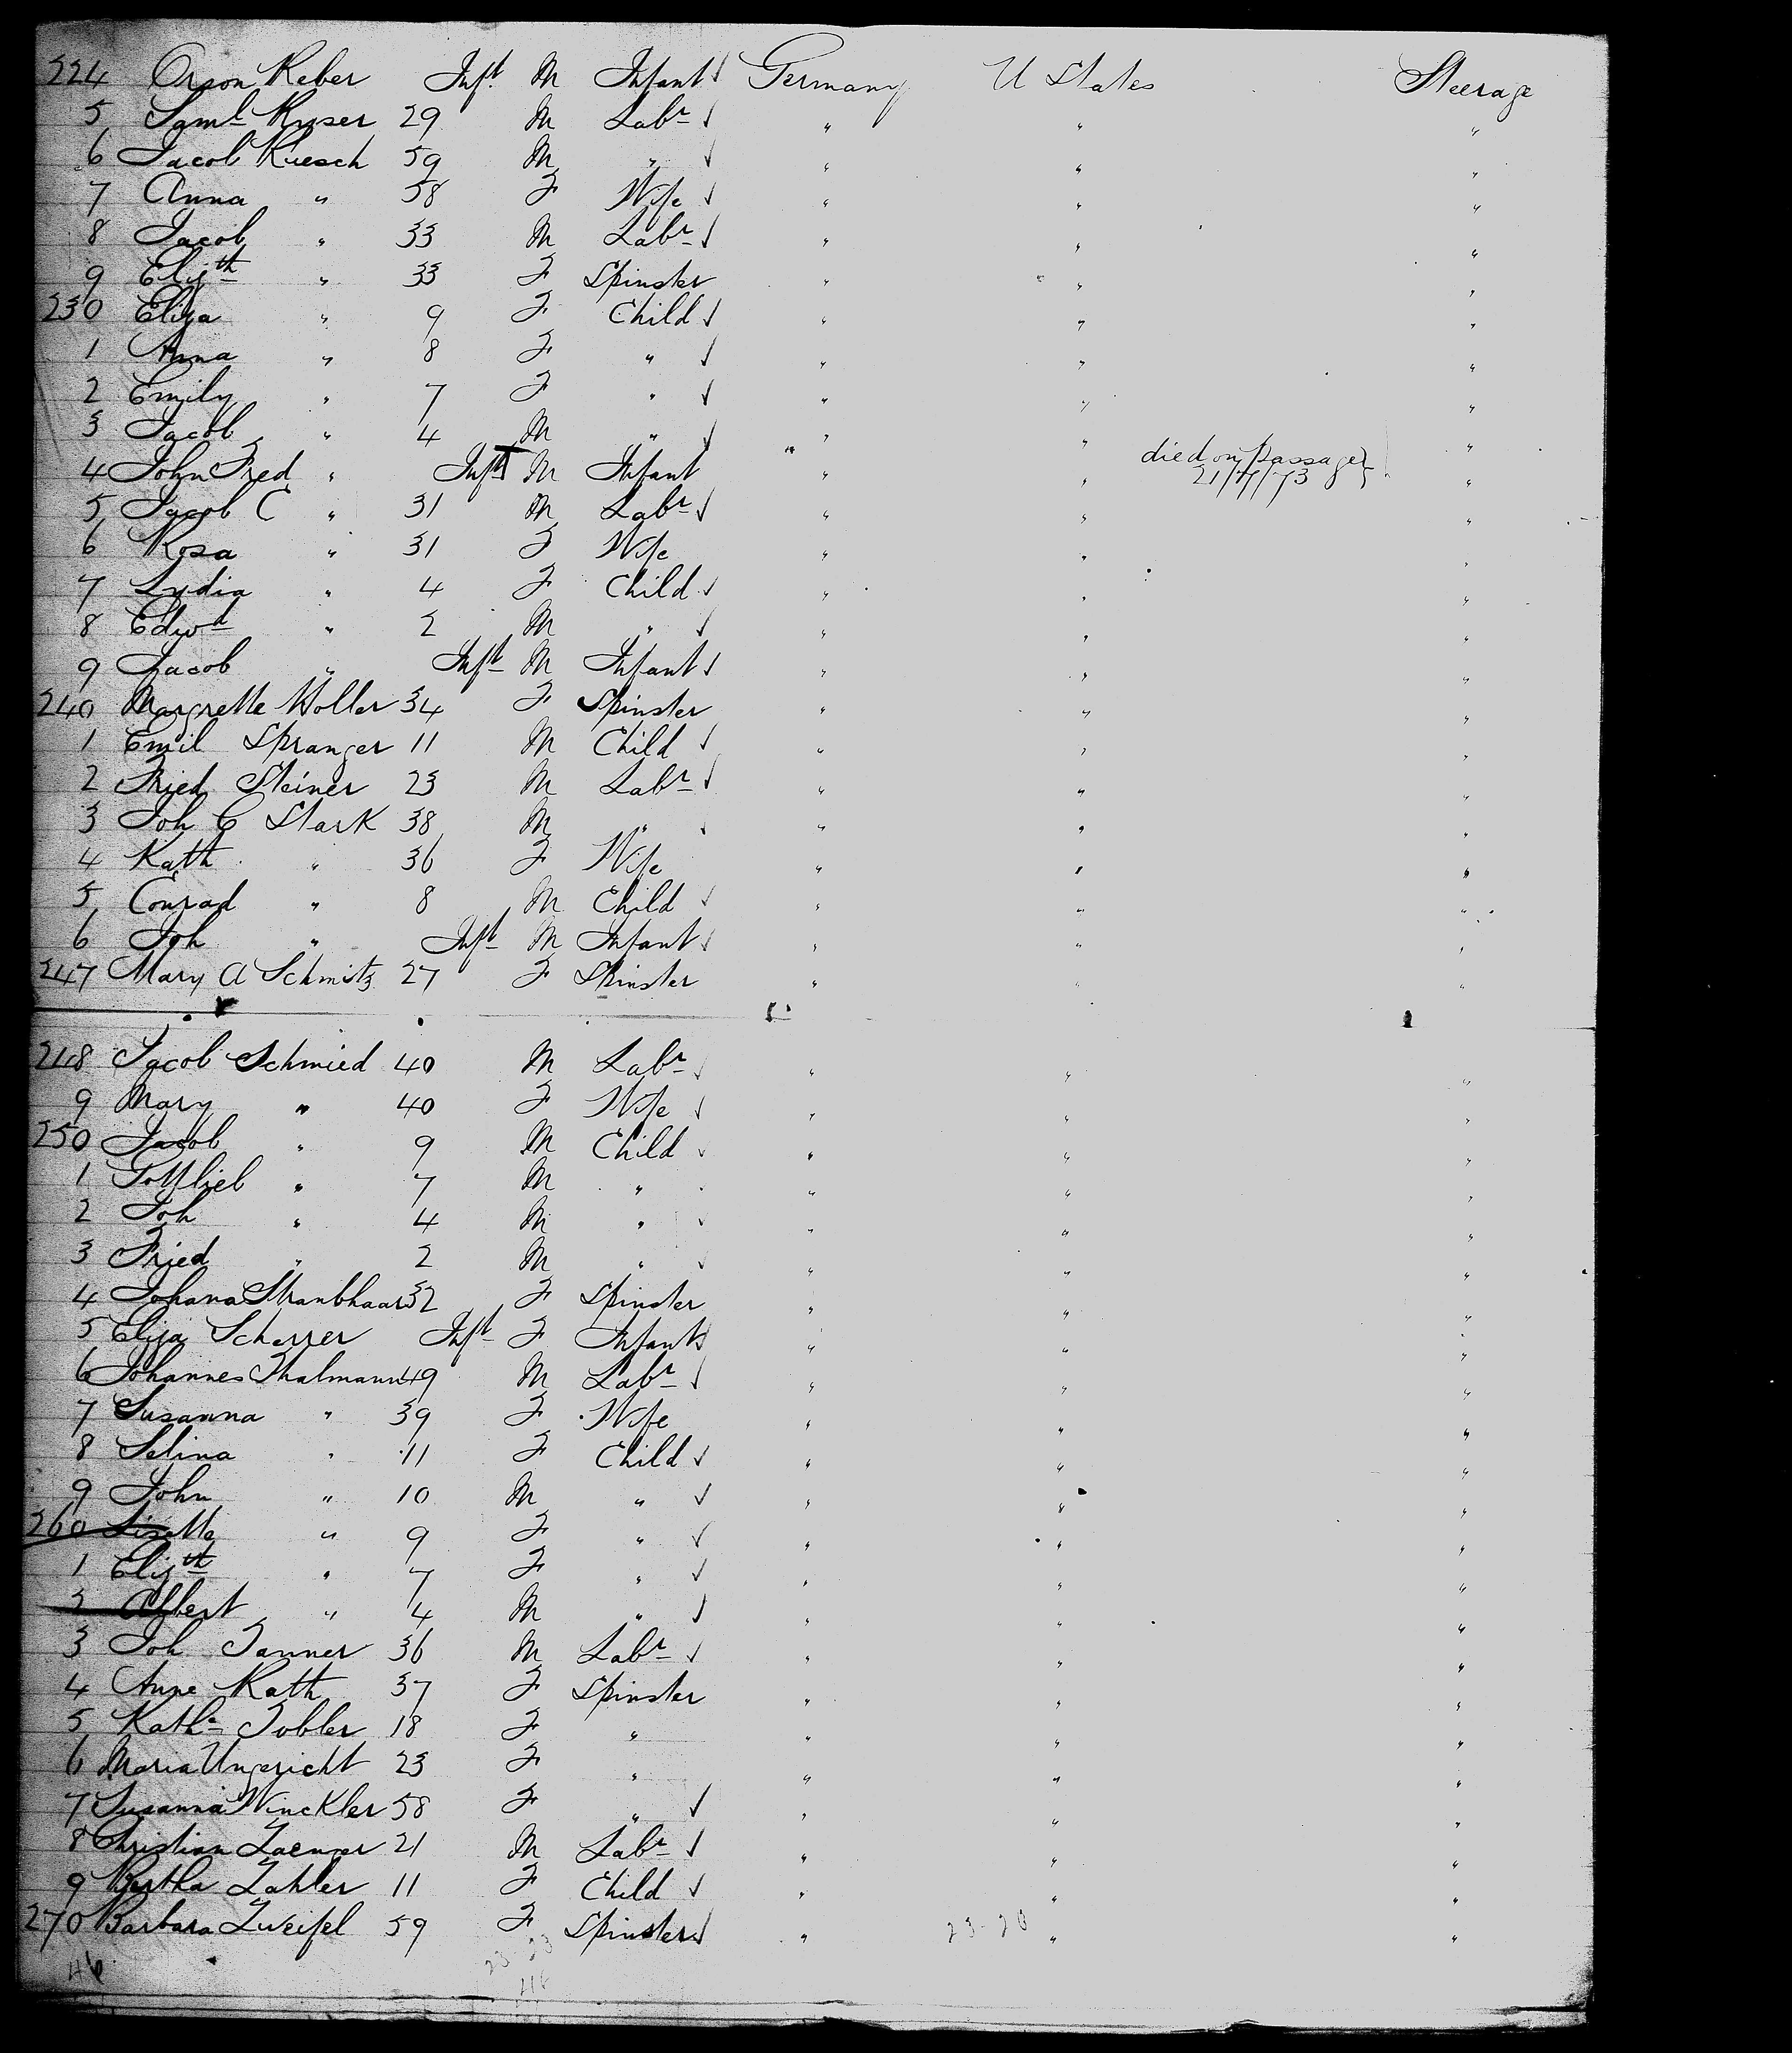 224 Orson Reber Inft. M Infant Germany U States Steerage
5 Saml Ryser 29 M Labr " " "
6 Jacob Ruesch 59 M " " " "
7 Anna " 58 F Wife " " "
8 Jacob " 33 M Labr " " "
9 Elizth " 33 F Spinster " " "
230 Eliza " 9 F Child " " "
1 Anna " 8 F " " " "
2 Emily " 7 F " " " "
3 Jacob " 4 M " " " "
4 John Fred " Inft M Infant " " died on passage "
21/7/73
5 Jacob C " 31 M Labr " " "
6 Rosa " 31 F Wife " " "
7 Lydia " 4 F Child " " "
8 Edwd " 2 M " " " "
9 Jacob " Inft M Infant " " "
240 Margrette Woller 34 F Spinster " " "
1 Emil Spranger 11 M Child " " "
2 Fried Steiner 23 M Labr " " "
3 Joh C Stark 38 M " " " "
4 Kath " 36 F Wife " " "
5 Conrad " 8 M Child " " "
6 Joh " Inft M Infant " " "
247 Mary A Schmitz 27 F Spinster " " "
248 Jacob Schmied 40 M Labr " " "
9 Mary " 40 F Wife " " "
250 Jacob " 9 M Child " " "
1 Gottlieb " 7 M " " " "
2 Joh " 4 M " " " "
3 Fried " 2 M " " " "
4 Johana Stranbhaar 32 F Spinster " " "
5 Eliza Scherrer Inft F Infant " " "
6 Johannes Thalmann 49 M Labr " " "
7 Susanna " 39 F Wife " " "
8 Selina " 11 F Child " " "
9 John " 10 M " " " "
260 Lisette " 9 F " " " "
1 Elizth " 7 F " " " "
2 Albert " 4 M " " " "
3 Joh Tanner 36 M Labr " " "
4 Anne Kath 37 F Spinster " " "
5 Katha Tobler 18 F " " " "
6 Maria Ungericht 23 F " " " "
7 Susanna Winckler 58 F " " " "
8 Christian Zaenger 21 M Labr " " "
9 Bertha Zahler 11 F Child " " "
270 Barbara Zweifel 59 F Spinster " 23-20 " "
46 23-23
46